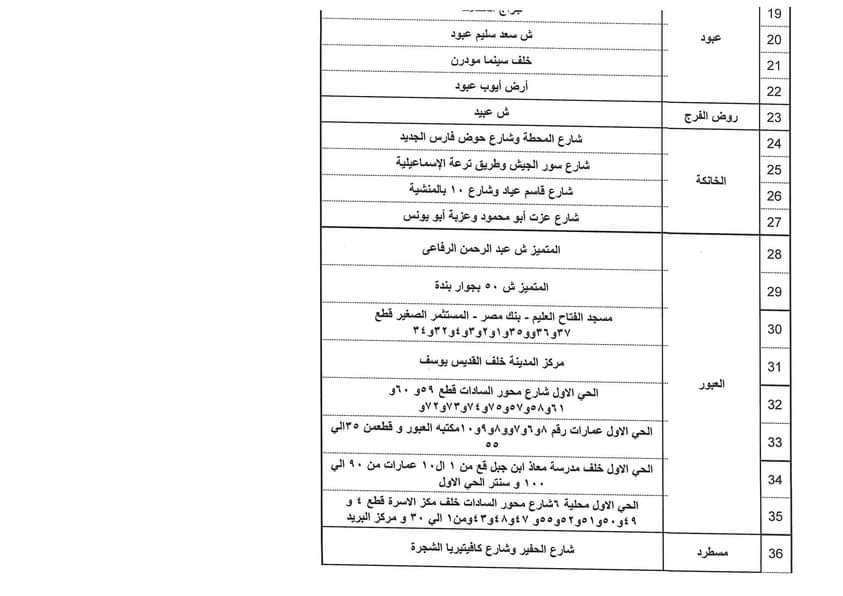 19
20 عبود ش سعد سليم عبود
21 خلف سينما مودرن
22 أرض أيوب عبود
23 روض الفرج ش عبيد
24 شارع المحطة وشارع حوض فارس الجديد
25 الخانكة شارع سور الجيش وطريق ترعة الإسماعيلية
26 شارع قاسم عياد وشارع ١٠ بالمنشية
27 شارع عزت أبو محمود وعزبة أبو يونس
28 المتميز ش عبد الرحمن الرفاعى
29 المتميز ش ٥٠ بجوار بندة
30 مسجد الفتاح العليم - بنك مصر - المستثمر الصغير قطع
٣٧و٣٦وو٣٥و١و٢و٣و٤و٣٢و٣٤
31 مركز المدينة خلف القديس يوسف
العبور
32 الحي الاول شارع محور السادات قطع ٥٩و ٦٠و
٦١و٥٨و٥٧و٧٥و٧٤و٧٣و٧٢و
33 الحي الاول عمارات رقم ٨و٦و٧وو٨و٩و١٠مكتبه العبور و قطعمن ٣٥الي
٥٥
34 الحي الاول خلف مدرسة معاذ ابن جبل قع من ١ ال١٠ عمارات من ٩٠ الي
١٠٠ و سنتر الحي الاول
35 الحي الاول محلية ٦شارع محور السادات خلف مكز الاسرة قطع ٤ و
٤٩و٥٠و٥١و٥٢و٥٥و ٤٧و٤٨و٤٣ومن١ الي ٣٠ و مركز البريد
36 مسطرد شارع الحفير وشارع كافيتيريا الشجرة